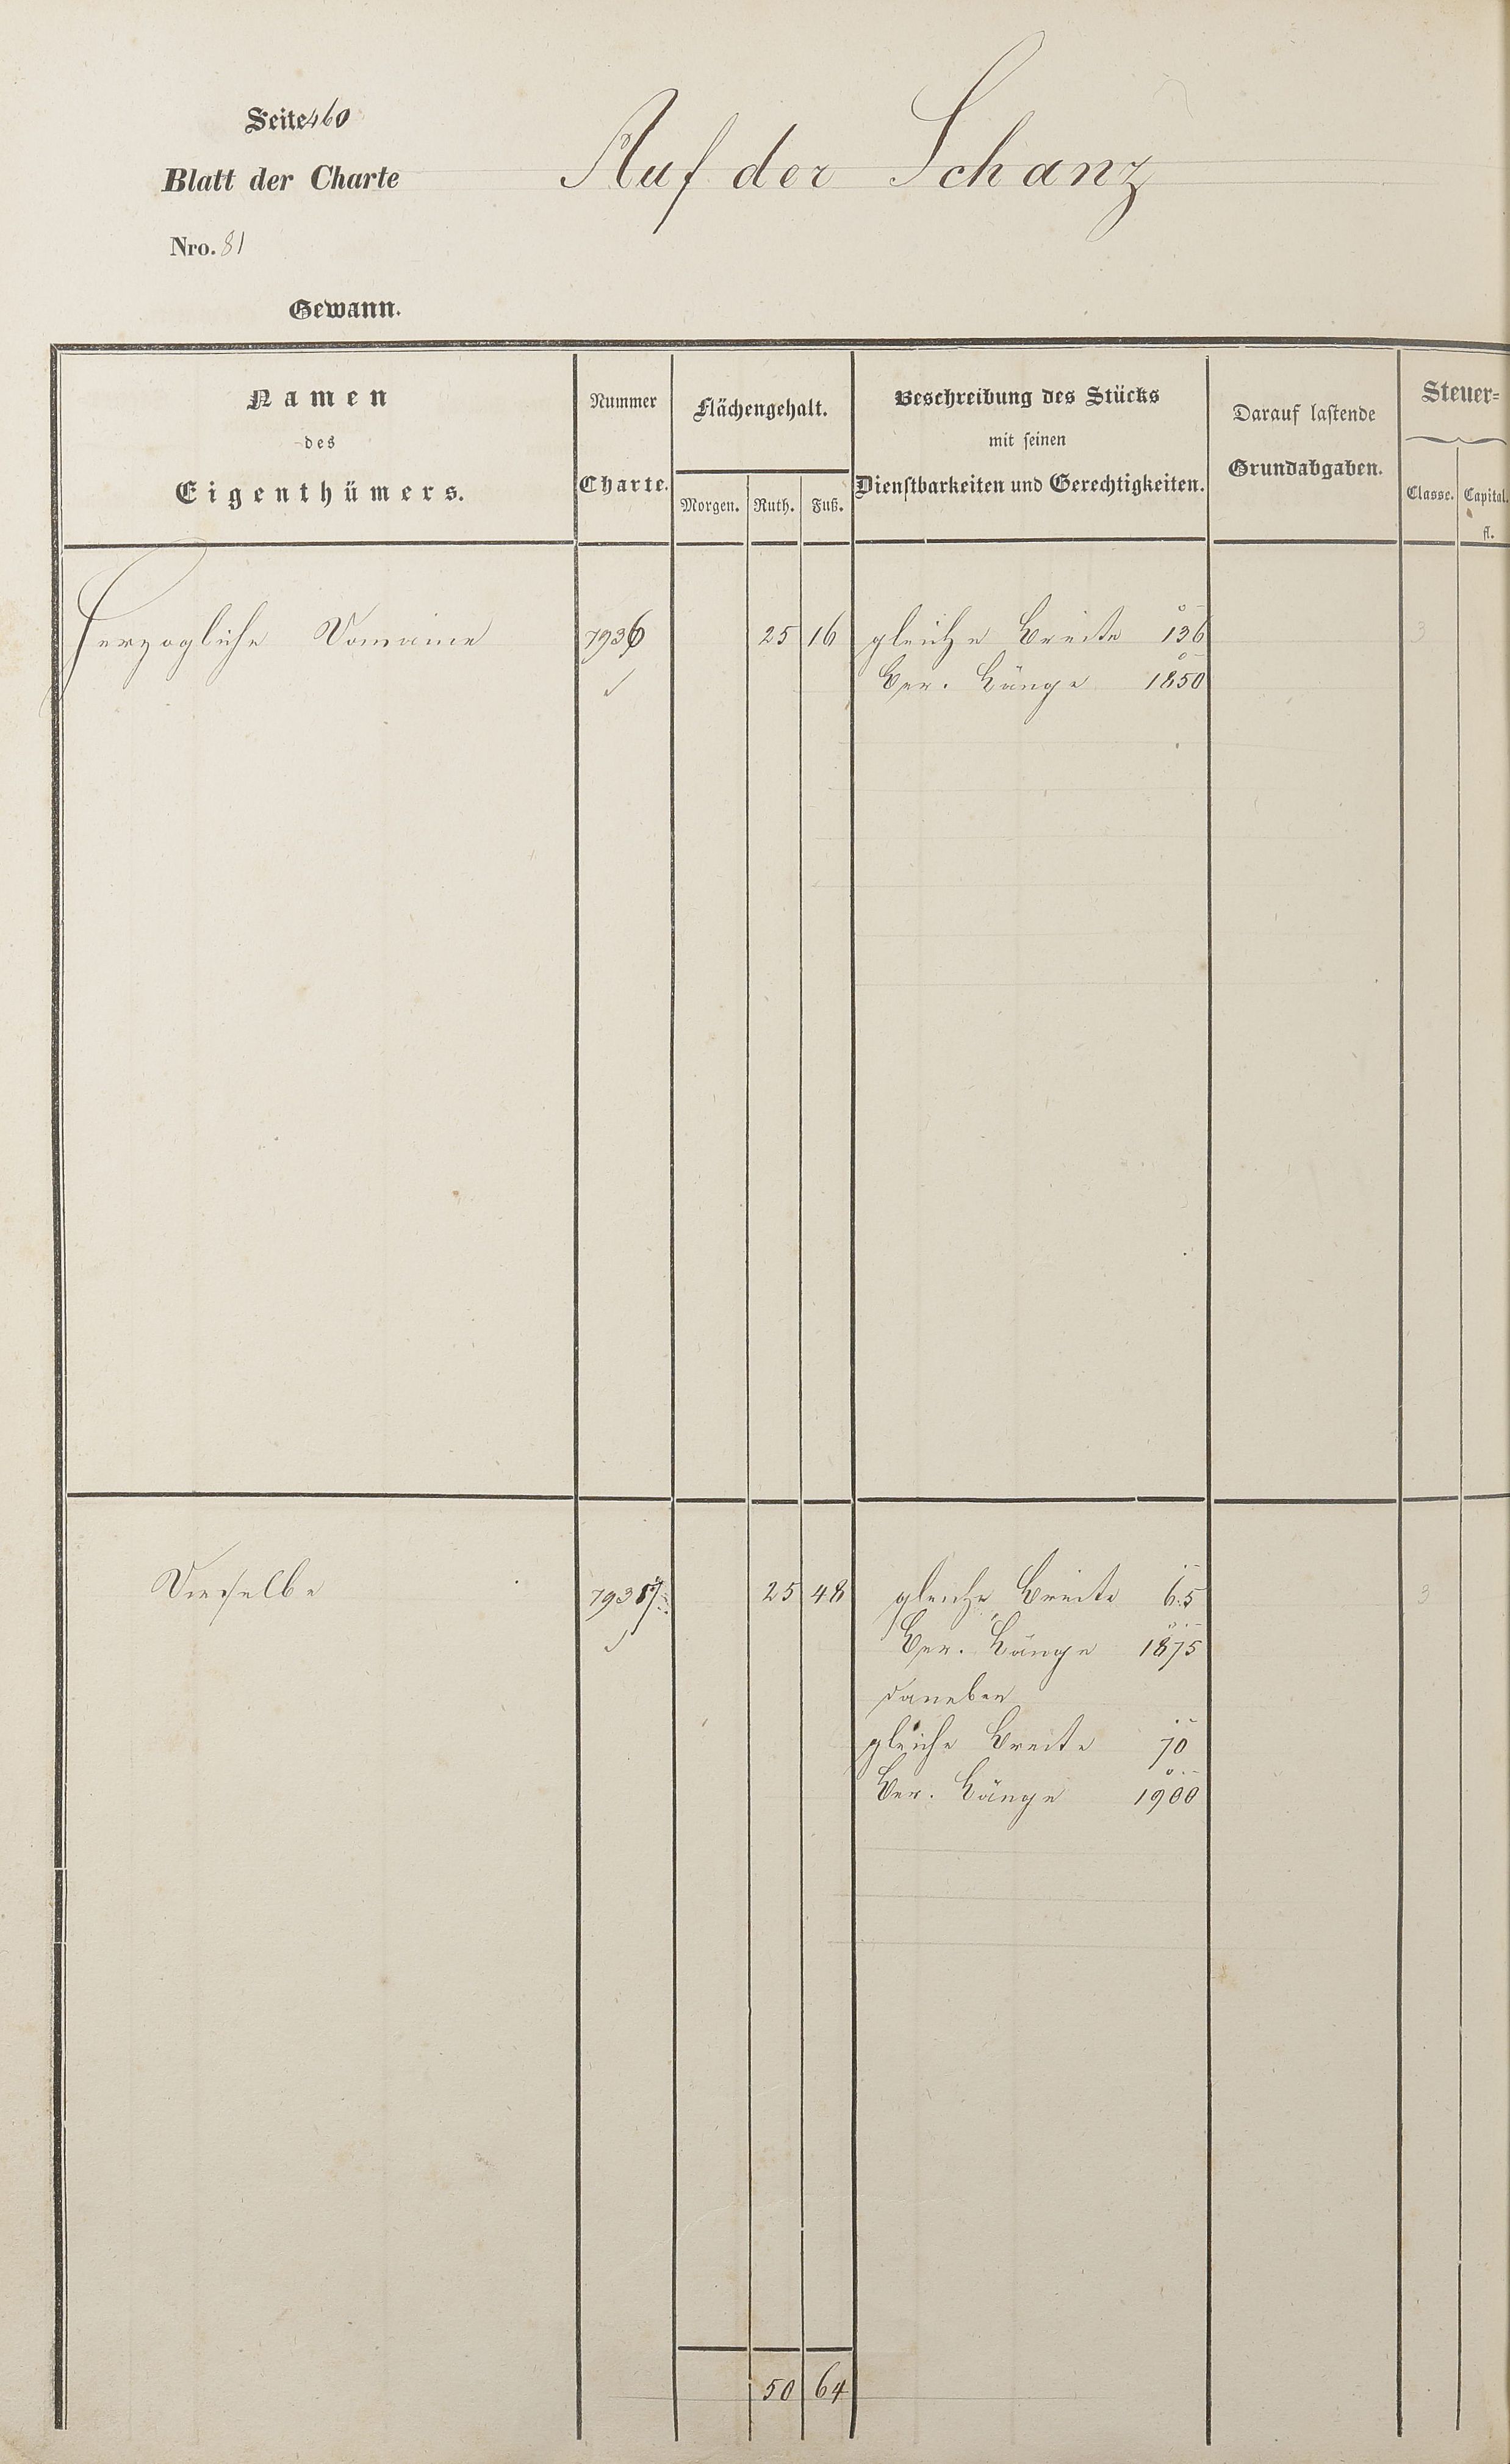 Seite 460
Auf der Schanz
Blatt der Charte
Nro. 81
Gewann.
Namen
des
Eigenthümers.
Nummer
Charte.
Flächengehalt.
Morgen. Ruth. Fuß.
Beschreibung des Stücks
mit seinen
Dienstbarkeiten und Gerechtigkeiten.
Darauf lastende
Grundabgaben.
Steuer=
Classe. Capital.
fl.
Herzogliche Domaine 7936 25 16 gleiche Breite 136 3
Ver. Länge 1850
Dieselbe 7937 25 48 gleiche Breite 6.5 3
Ver. Länge 1875
daneben
gleiche Breite 70
Ver. Länge 1900
50 64